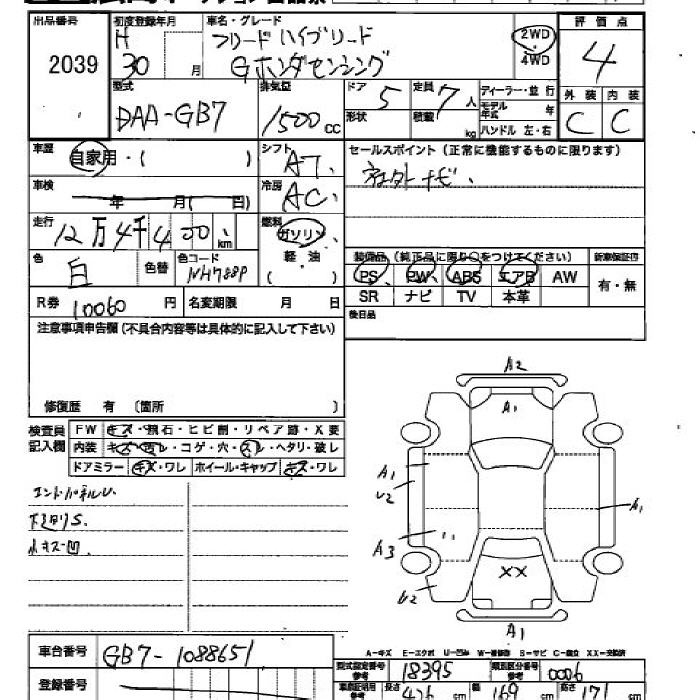 出品番号 初度登録年月 車名・グレード 評価点
2039 H 30 月 フリードハイブリッド 2WD 4
Gホンダセンシング 4WD
型式 排気量 ドア 定員 ディーラー・並行 外装 内装
DAA-GB7 1500 cc 5 7人 モデル年式 年 C C
形状 積載 kg ハンドル 左・右
車歴 自家用・( ) シフト AT セールスポイント (正常に機能するものに限ります)
車検 年 月( 日) 冷房 AC
走行 12万4千400 km 燃料 ガソリン 軽油 ( )
色 白 色替 色コード NH788P
装備品 (純正品に限り○をつけてください) 新車保証書
PS PW ABS エアB AW 有・無
SR ナビ TV 本革
R券 10060 円 名変期限 月 日 後日品
注意事項申告欄 (不具合内容等は具体的に記入して下さい)
修復歴 有 〔箇所 〕
検査員記入欄 FW キズ・飛石・ヒビ割・リペア跡・X要
内装 キズ・汚レ・コゲ・穴・スレ・ヘタリ・破レ
ドアミラー キズ・ワレ ホイール・キャップ キズ・ワレ
エンドパネルU
下廻りS
小キズ凹
A2
A1
A1
U2
A1
A3
XX
U2
A1
A-キズ E-エクボ U-凹み W-補修跡 S-サビ C-腐食 XX-交換済
車台番号 GB7-1088651
型式指定番号 参考 18395 類別区分番号 参考 0006
登録番号
車検証明用 参考 長さ 426 cm 幅 169 cm 高さ 171 cm